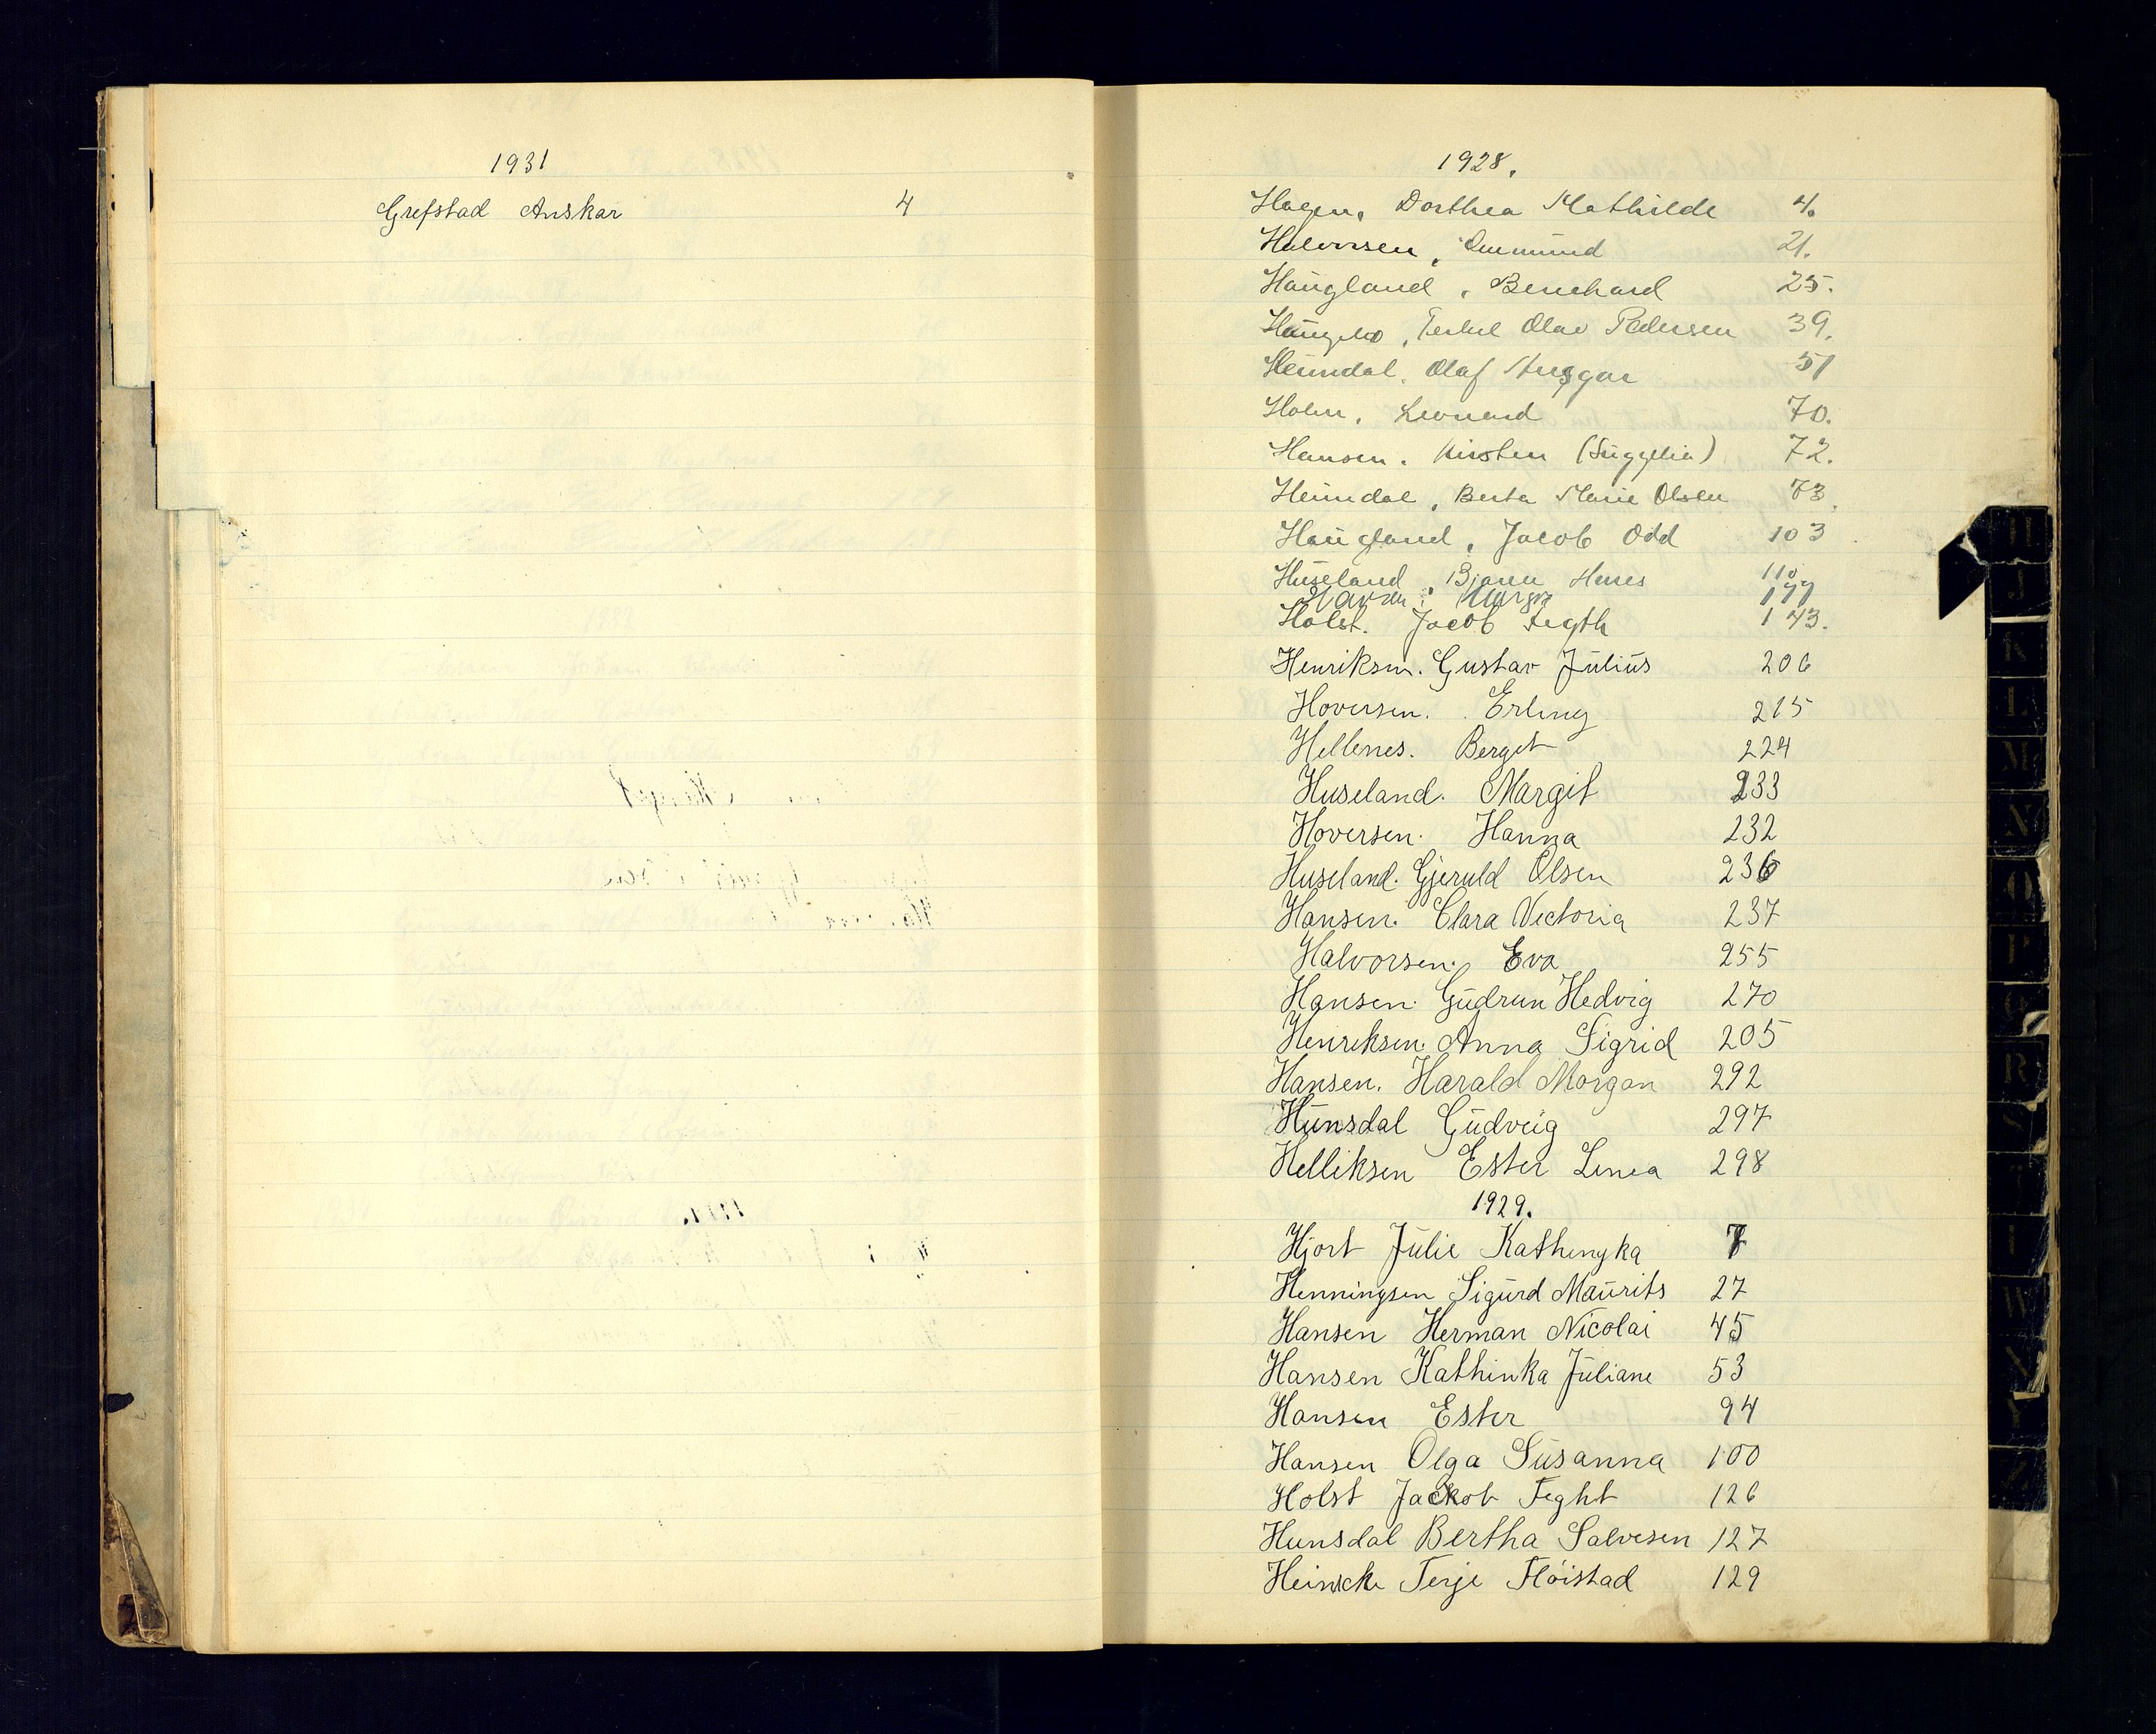 1931
Grefstad Anskar 4
1928.
Hagen, Dorthea Mathilde 4.
Halvorsen, Ommund 21.
Haugland, Bernhard 25.
Terkel Olav Pedersen 39.
Heimdal, Olaf Ansgar 51
Holm, Leonard 70.
Hansen, Kirsten 72.
Heimdal, Berta Marie Olsen 73.
Haugland, Jacob Odd 103
Huseland, Bjarne Hans 110
177
Holst. Jacob Fegth 143.
Henriksen. Gustav Julius 206
Hoversen. Erling 215
Hellenes. Berget 224
Huseland. Margit 233
Hoversen. Hanna 232
Huseland. Gjeruld Olsen 236
Hansen. Clara Victoria 237
Halvorsen. Eva 255
Hansen. Gudrun Hedvig 270
Henriksen. Anna Sigrid 205
Hansen. Harald Morgan 292
Hunsdal Gudveig 297
Helliksen Ester Linea 298
1929.
Hjort Julie Kathingka 7
Henningsen Sigurd Maurits 27
Hansen Herman Nicolai 45
Hansen Kathinka Juliane 53
Hansen Ester 94
Hansen Olga Susanna 100
Holst Jackob Feght 126
Hunsdal Bertha Salvesen 127
Heincke Terje Flöistad 129
H
J
K
L
M
N
O
P
R